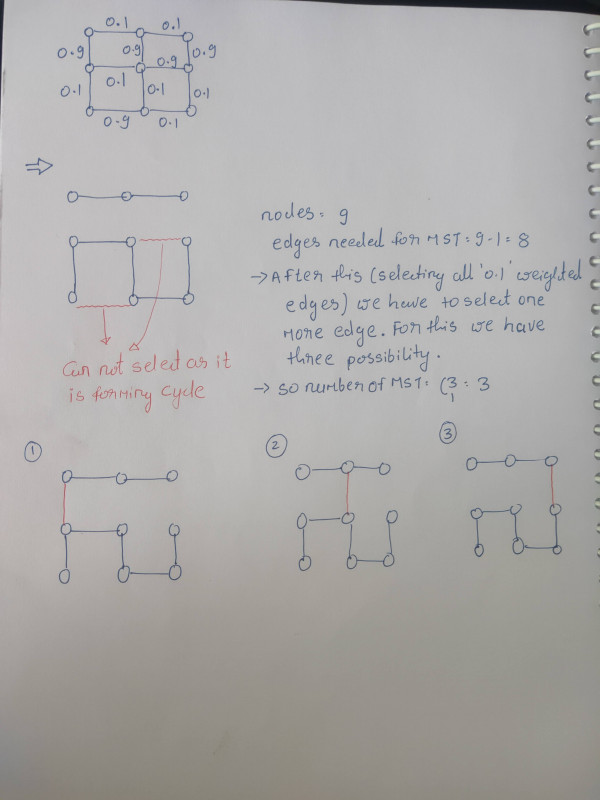 0.1 0.1
0.9 0.9 0.9
0.9
0.1 0.1 0.1 0.1
0.9 0.1
⇒
nodes = 9
edges needed for MST = 9-1 = 8
→ After this (selecting all '0.1' weighted
edges) we have to select one
more edge. For this we have
three possibility.
→ so number of MST = (3 1 = 3
Can not select as it
is forming cycle
1 2 3